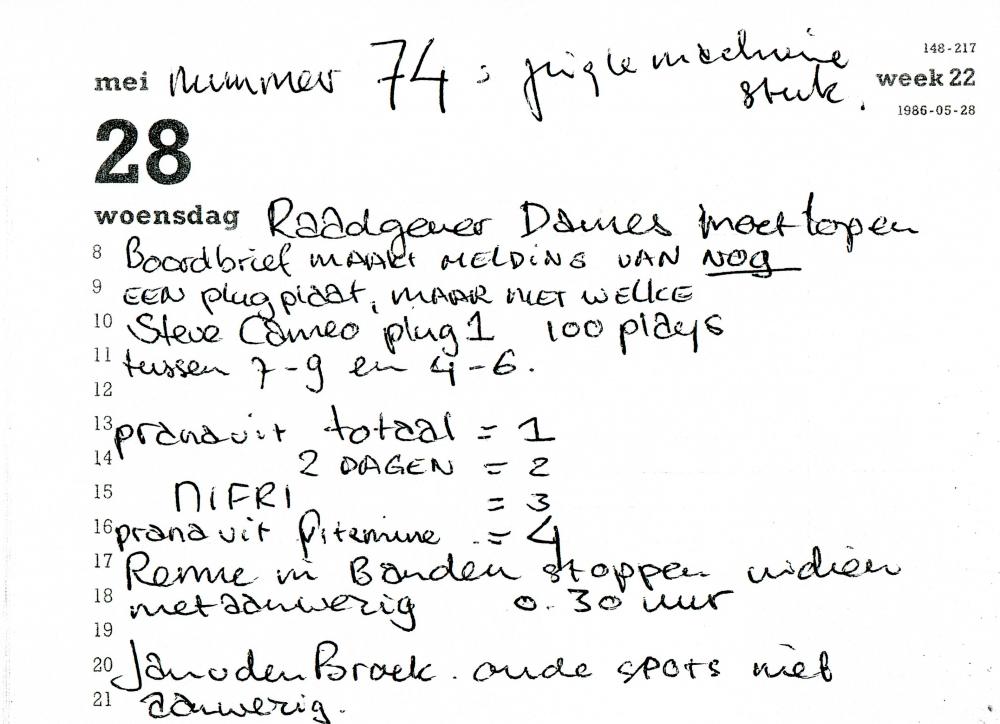 148-217
mei nummer 74: jingle machine
stuk.
week 22
1986-05-28
28
woensdag Raadgever Dames moet lopen
8 Boordbrief MAAKT MELDING VAN NOG
9 EEN plugplaat, MAAR NIET WELKE
10 Steve Cameo plug 1 100 plays
11 tussen 7-9 en 4-6.
12
13 pranavit totaal = 1
14 2 DAGEN = 2
15 NIFRI = 3
16 pranavit = 4
17 in Banden stoppen indien
18 niet aanwezig 0.30 uur
19
20 Jan v den Broek. oude SPOTS niet
21 aanwezig.